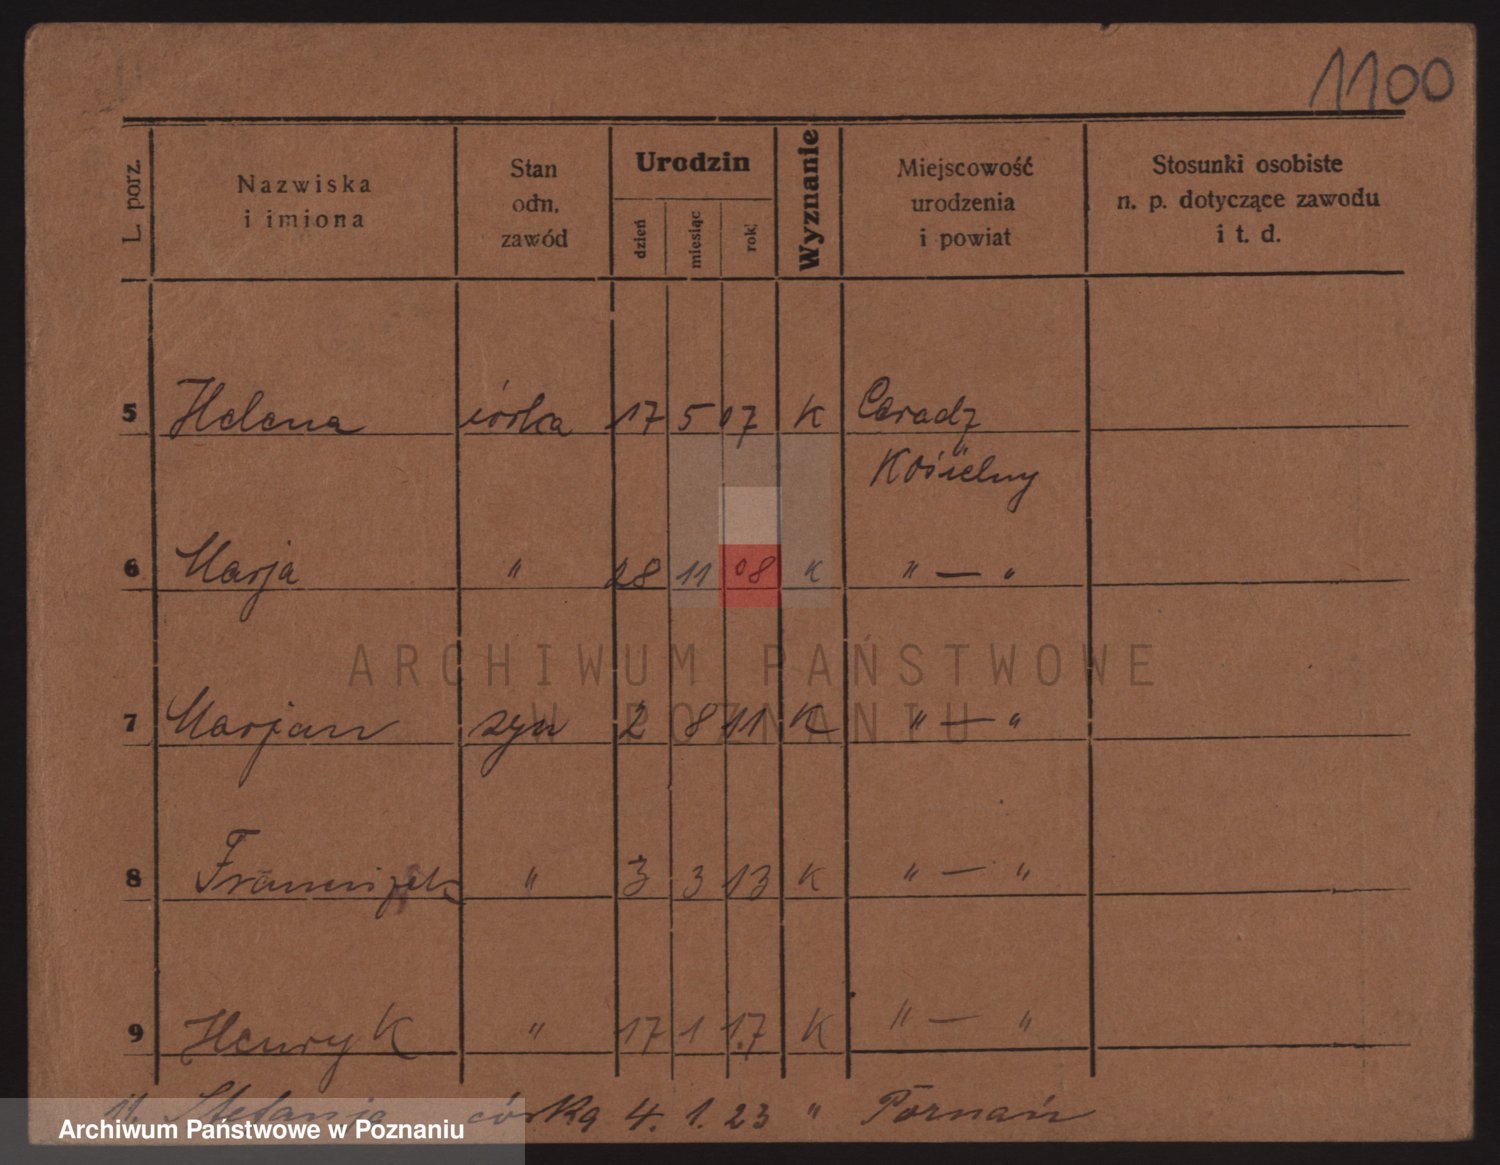 1100
L. porz.
Nazwiska
i imiona
Stan
odn.
zawód
Urodzin
dzień
miesiąc
rok
Wyznanie
Miejscowość
urodzenia
i powiat
Stosunki osobiste
n. p. dotyczące zawodu
i t. d.
5 Helena córka 17 5 07 K Ceradz
Kościelny
6 Marja " 28 11 08 K " — "
ARCHIWUM PAŃSTWOWE
W POZNANIU
7 Marjan syn 2 8 11 K " — "
8 Franciszek " 3 3 13 K " — "
9 Henryk " 17 1 17 K " — "
11. Stefania córka 4. 1. 23 " Poznań
Archiwum Państwowe w Poznaniu